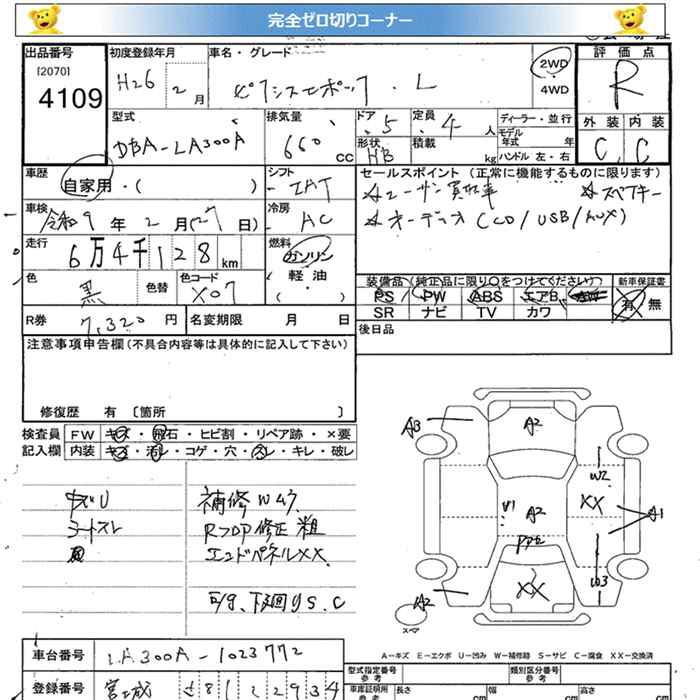 完全ゼロ切りコーナー
出品番号 初度登録年月 車名・グレード 評価点
[2070] 4109 H26 年 2月 ピクシスエポック . L 2WD 4WD R
型式 排気量 ドア 定員 ディーラー・並行 外装 内装
DBA-LA300A 660 CC 5 4人 モデル年式 年 C C
形状 HB 積載 kg ハンドル 左・右
車歴 シフト セールスポイント (正常に機能するものに限ります)
自家用・( ) IAT ☆ユーザー買取車 ☆スペアキー
車検 冷房 ☆オーディオ(CD/USB/AUX)
令和9年2月(27日) AC
走行 燃料
6万4千128km ガソリン
色 色替 色コード 軽油
黒 X07 ( )
装備品 (純正品に限り○をつけてください) 新車保証書
PS PW ABS エアB AW 有 無
SR ナビ TV カワ
R券 7,320円 名変期限 月 日 後日品
注意事項申告欄(不具合内容等は具体的に記入して下さい)
修復歴 有 〔箇所 〕
検査員 FW キズ・飛石・ヒビ割・リペア跡・×要
記入欄 内装 キズ・汚レ・コゲ・穴・スレ・キレ・破レ
補修Wスク
RフロアP修正 粗
エンドパネルXX
下廻りS.C
A3 A2 W2 XX A1
U1 A2
XX W3 A2
スペア
A−キズ E−エクボ U−凹み W−補修跡 S−サビ C−腐食 XX−交換済
車台番号 LA300A-1023772
登録番号 宮城 581 2934
型式指定番号 類別区分番号
参考 参考
車庫証明用 長さ cm 幅 cm 高さ cm